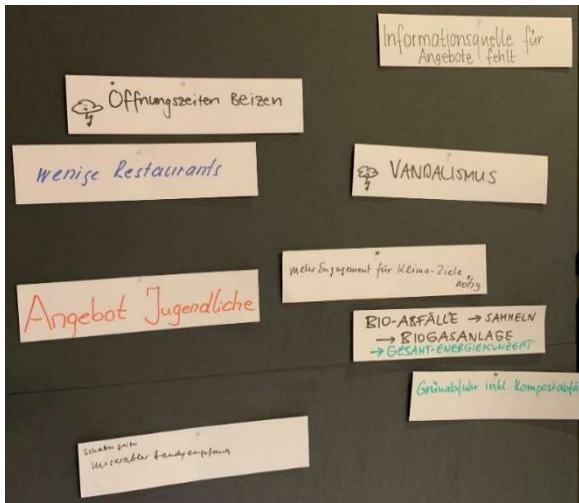 Informationsquelle für
Angebote fehlt
Öffnungszeiten Beizen
wenige Restaurants
VANDALISMUS
mehr Engagement für Klima-Ziele
nötig
Angebot Jugendliche
BIO-ABFÄLLE → SAMMELN
→ BIOGASANLAGE
→ GESAMT-ENERGIEKONZEPT
Grünabfuhr inkl. Kompostabfä
miserabler Handyempfang